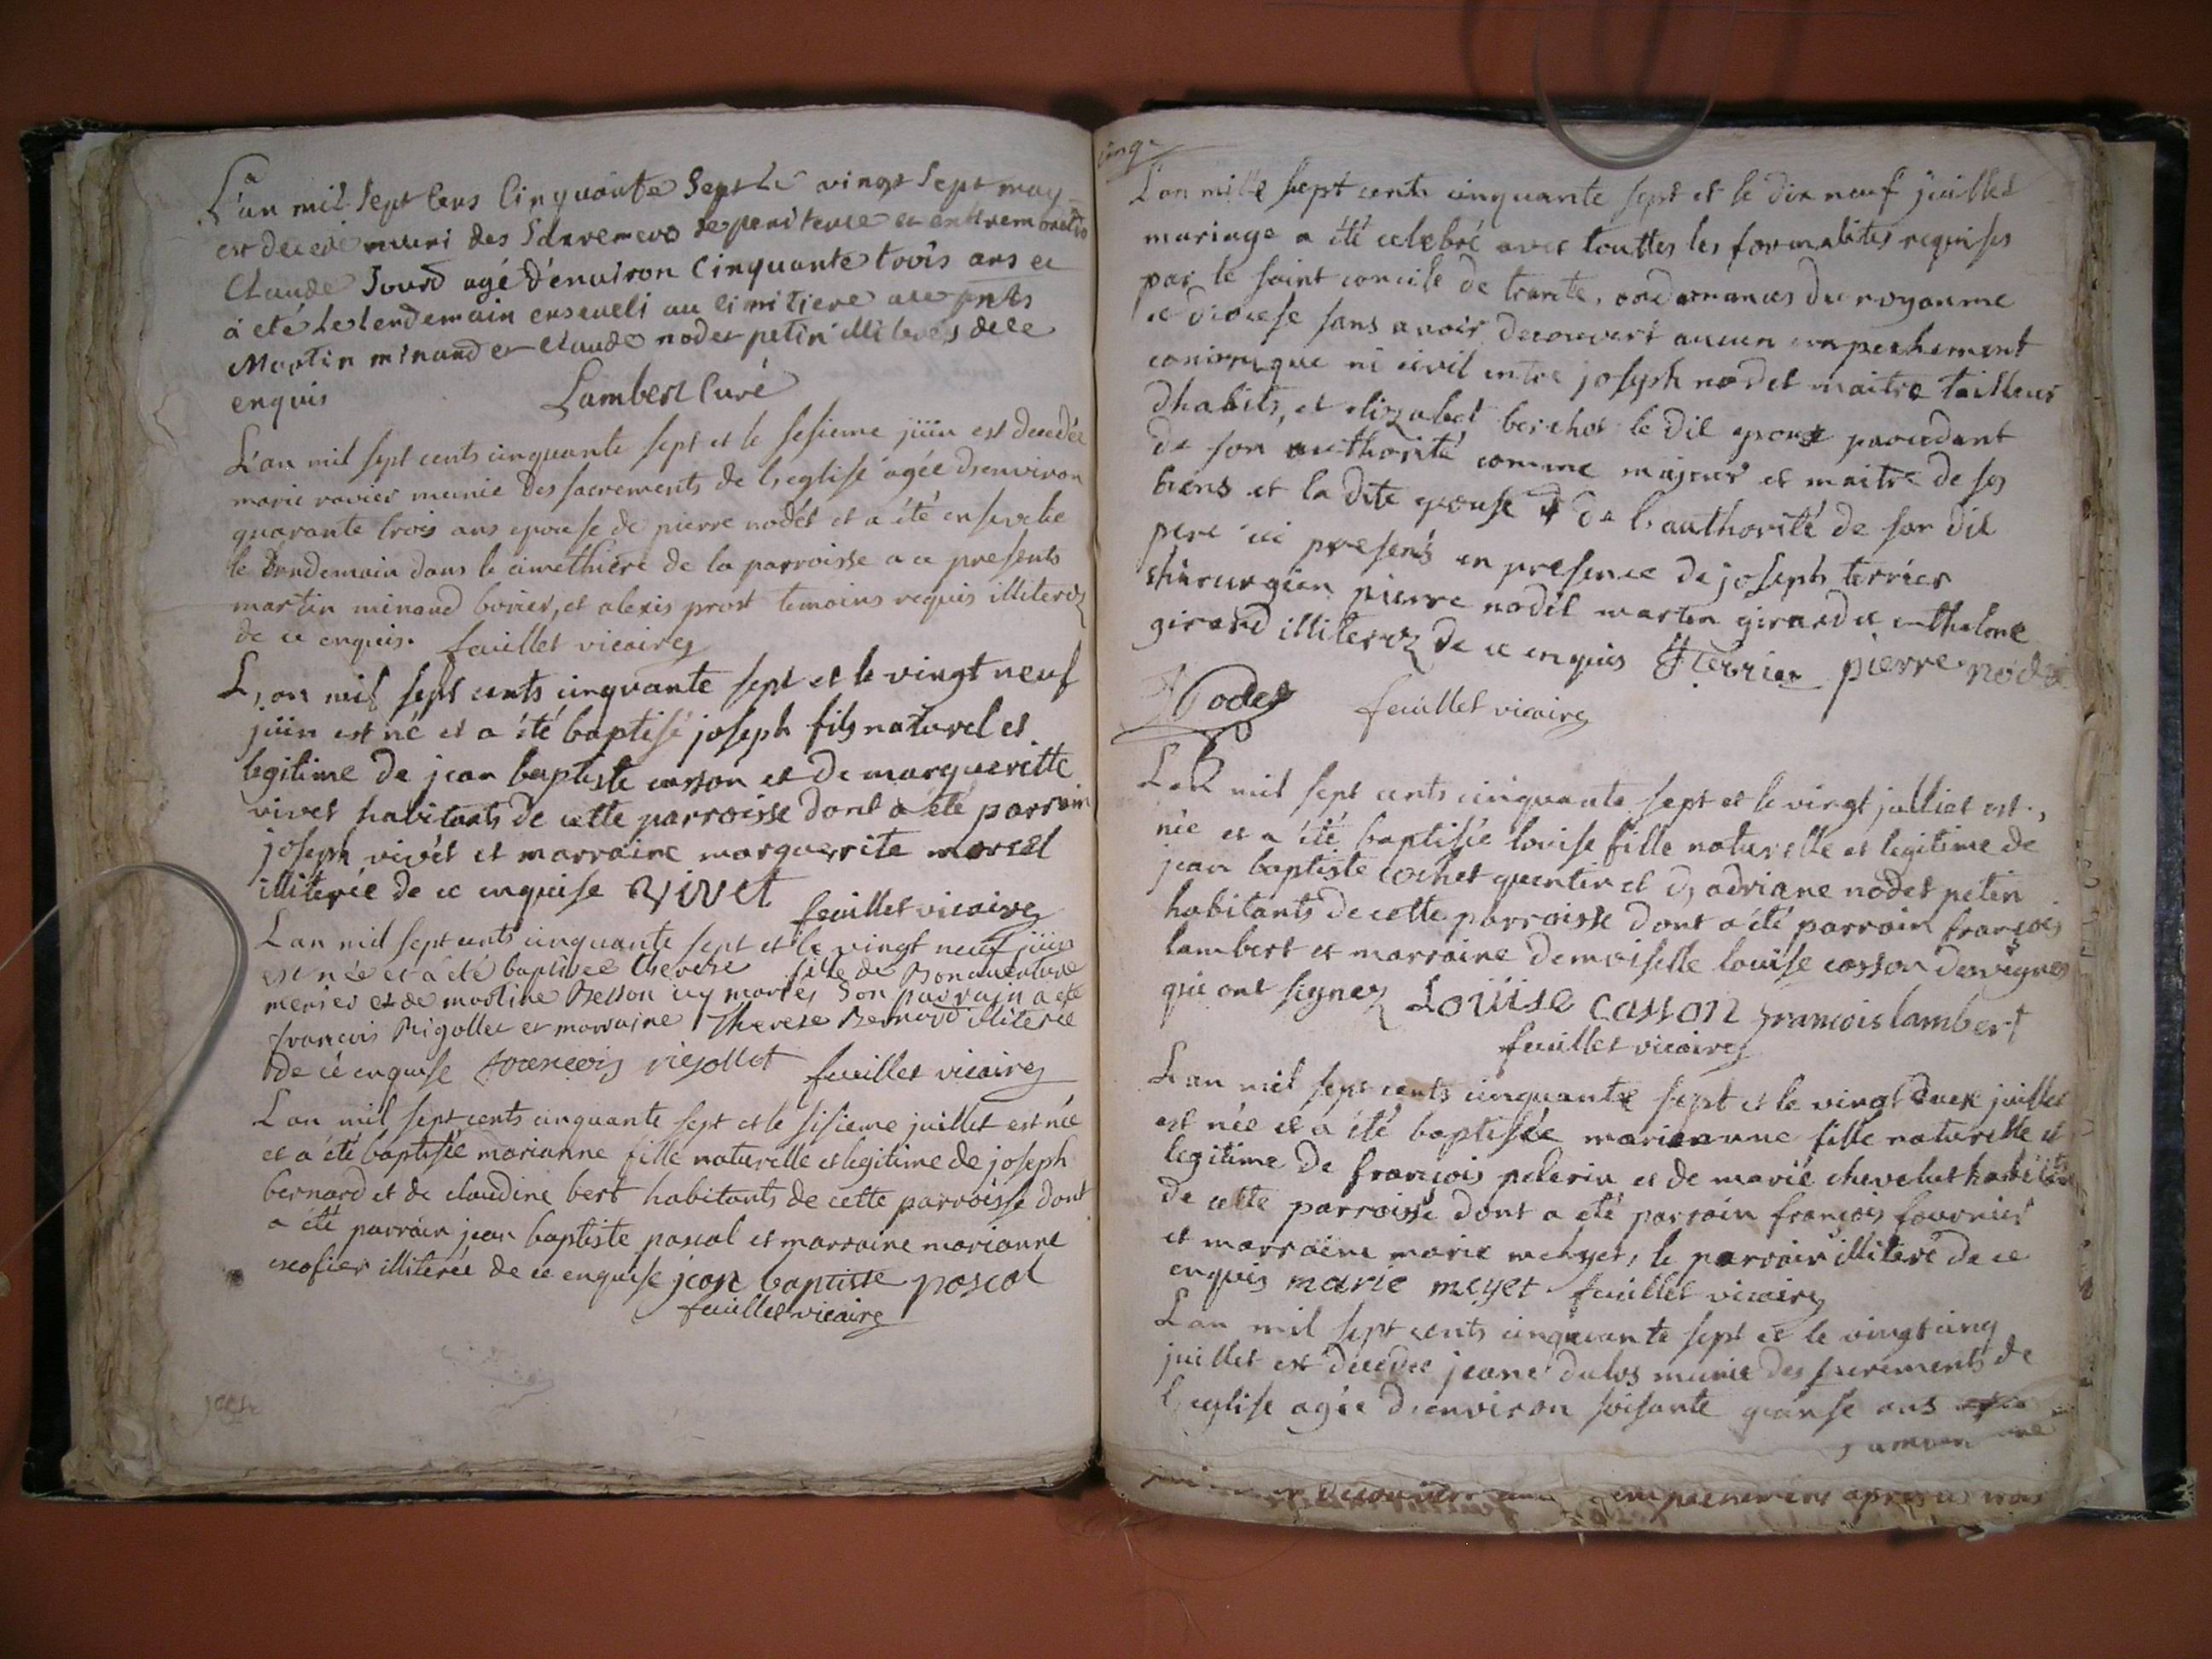 L'an mil sept cens Cinquante Sept Le vingt Sept may
est decedé muni des Sacremens de penitence et extrem onction
Claude Jourd agé d'environ Cinquante trois ans et
a eté Le lendemain enseveli au cimitiere a ce pnts
Martin minaud et claude nodet petin illiterés de ce
enquis Lambert Curé
L'an mil sept cents cinquante sept et le sesieme jüin est decedée
marie ravier munie des sacrements de l'eglise agée d'environ
quarante trois ans epouse de pierre nodet et a été ensevelie
le lendemain dans le cimethiere de la parroisse a ce presents
martin minaud bovier, et alexis prost temoins requis illiterez
de ce enquis. feuillet vicaire
L'an mil sept cents cinquante sept et le vingt neuf
jüin est né et a été baptisé joseph fils naturel et
legitime de jean baptiste casson et de margueritte
vivet habitants de cette parroisse dont a été parrain
joseph vivet et marraine marguerite morcel
illiterée de ce enquise vivet
feuillet vicaire
L'an mil sept cents cinquante sept et le vingt neuf jüin
est née et a été baptisée therese fille de Bonaventure
menier et de marline Besson cy maries Son parrain a eté
francois Rigollet et marraine Therese Bernard illiterée
de ce enquise francois rigollot feuillet vicaire
L'an mil sept cents cinquante sept et le sisieme juillet est née
et a été baptisée marianne fille naturelle et legitime de joseph
bernard et de claudine bert habitants de cette parroisse dont
a été parrain jean baptiste pascal et marraine marianne
escofier illiterée de ce enquise jean baptiste pascal
feuillet vicaire
cinq
L'an mille sept cents cinquante sept et le dix neuf juillet
mariage a été celebré avec touttes les formalités requises
par le saint concile de trante, ordonnances du royaume
et diocese sans avoir decouvert aucun empechement
canonique ni civil entre joseph nodet maitre tailleur
dhabits, et elizabet berchet le dit epoux procedant
de son authorité comme majeur et maitre de ses
biens et la dite epouse de l'authorité de son dit
pere ici present en presence de joseph terrier
chirurgien pierre nodet martin girard et anthelme
girard illiterez de ce enquis J Terrier pierre nodet
J Nodet feuillet vicaire
Lan mil sept cents cinquante sept et le vingt julliet est
née et a été baptisée louise fille naturelle et legitime de
jean baptiste cochet quentin et d'adriane nodet petin
habitants de cette parroisse dont a été parrain françois
lambert et marraine demoiselle louise casson desvignes
qui ont signez Loüise casson francois lambert
feuillet vicaire
Lan mil sept cents cinquante sept et le vingt deux juillet
est née et a été baptisée marienne fille naturelle et
legitime de françois pelerin et de marie chevelut habitants
de cette parroisse dont a eté parrain françois fournier
et marraine marie meyet, le parrain illiteré de ce
enquis marie meyet feuillet vicaire
Lan mil sept cents cinquante sept et le vingt cinq
juillet est decedée jeane dulos munie des sacrements de
l'eglise agée d'environ soisante quinse ans
decouvert empechement apres